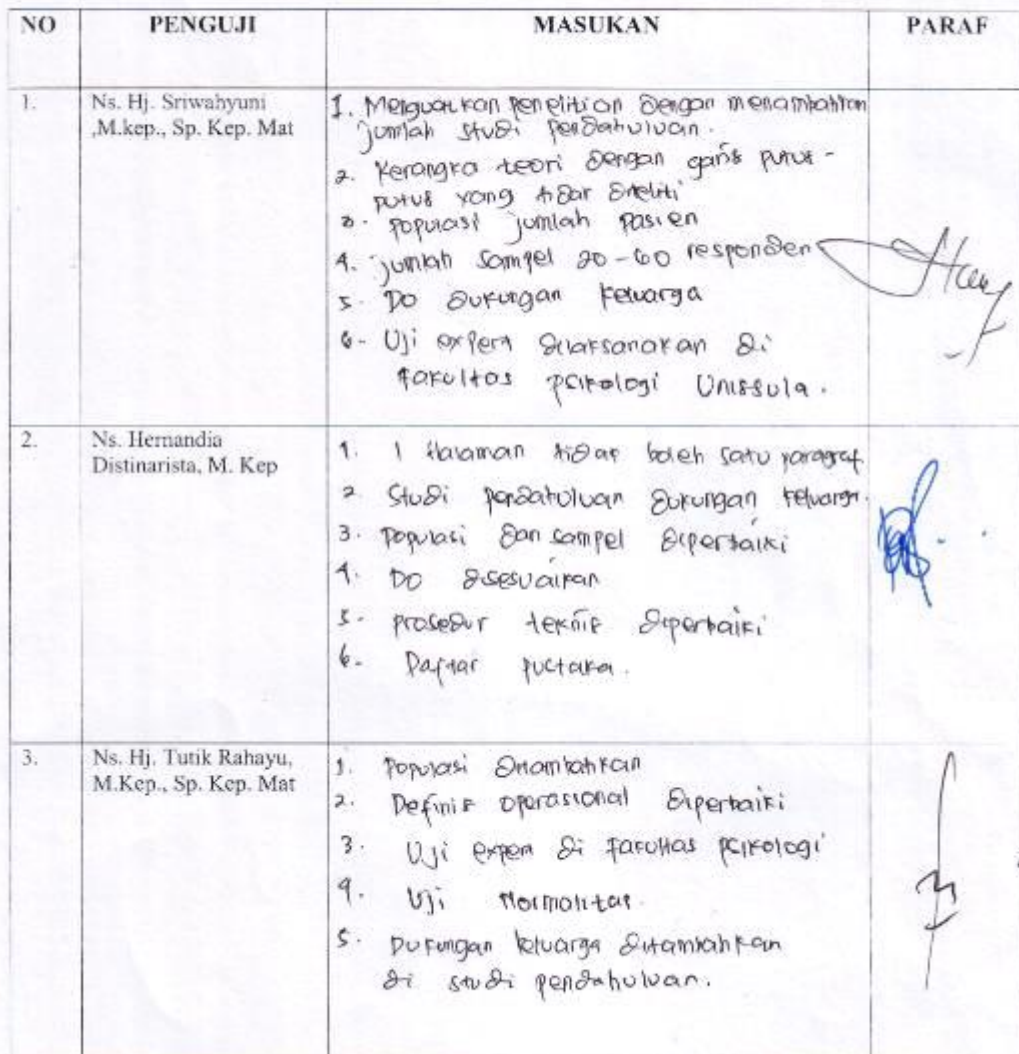 NO PENGUJI MASUKAN PARAF
1. Ns. Hj. Sriwahyuni
,M.kep., Sp. Kep. Mat
1. Menguatkan penelitian dengan menambahkan
jumlah studi pendahuluan.
2. Kerangka teori dengan garis putus-
putus yang tidak diteliti
3. populasi jumlah pasien
4. jumlah sampel 20-60 responden
5. DO dukungan keluarga
6. Uji expert dilaksanakan di
fakultas psikologi Unissula.
2. Ns. Hernandia
Distinarista, M. Kep
1. 1 Halaman tidak boleh satu paragraf
2. Studi pendahuluan dukungan keluarga.
3. Populasi dan sampel diperbaiki
4. DO disesuaikan
5. prosedur teknis diperbaiki
6. Daftar pustaka.
3. Ns. Hj. Tutik Rahayu,
M.Kep., Sp. Kep. Mat
1. Populasi ditambahkan
2. Definisi operasional diperbaiki
3. Uji expert di fakultas psikologi
4. Uji Normalitas.
5. Dukungan keluarga ditambahkan
di studi pendahuluan.